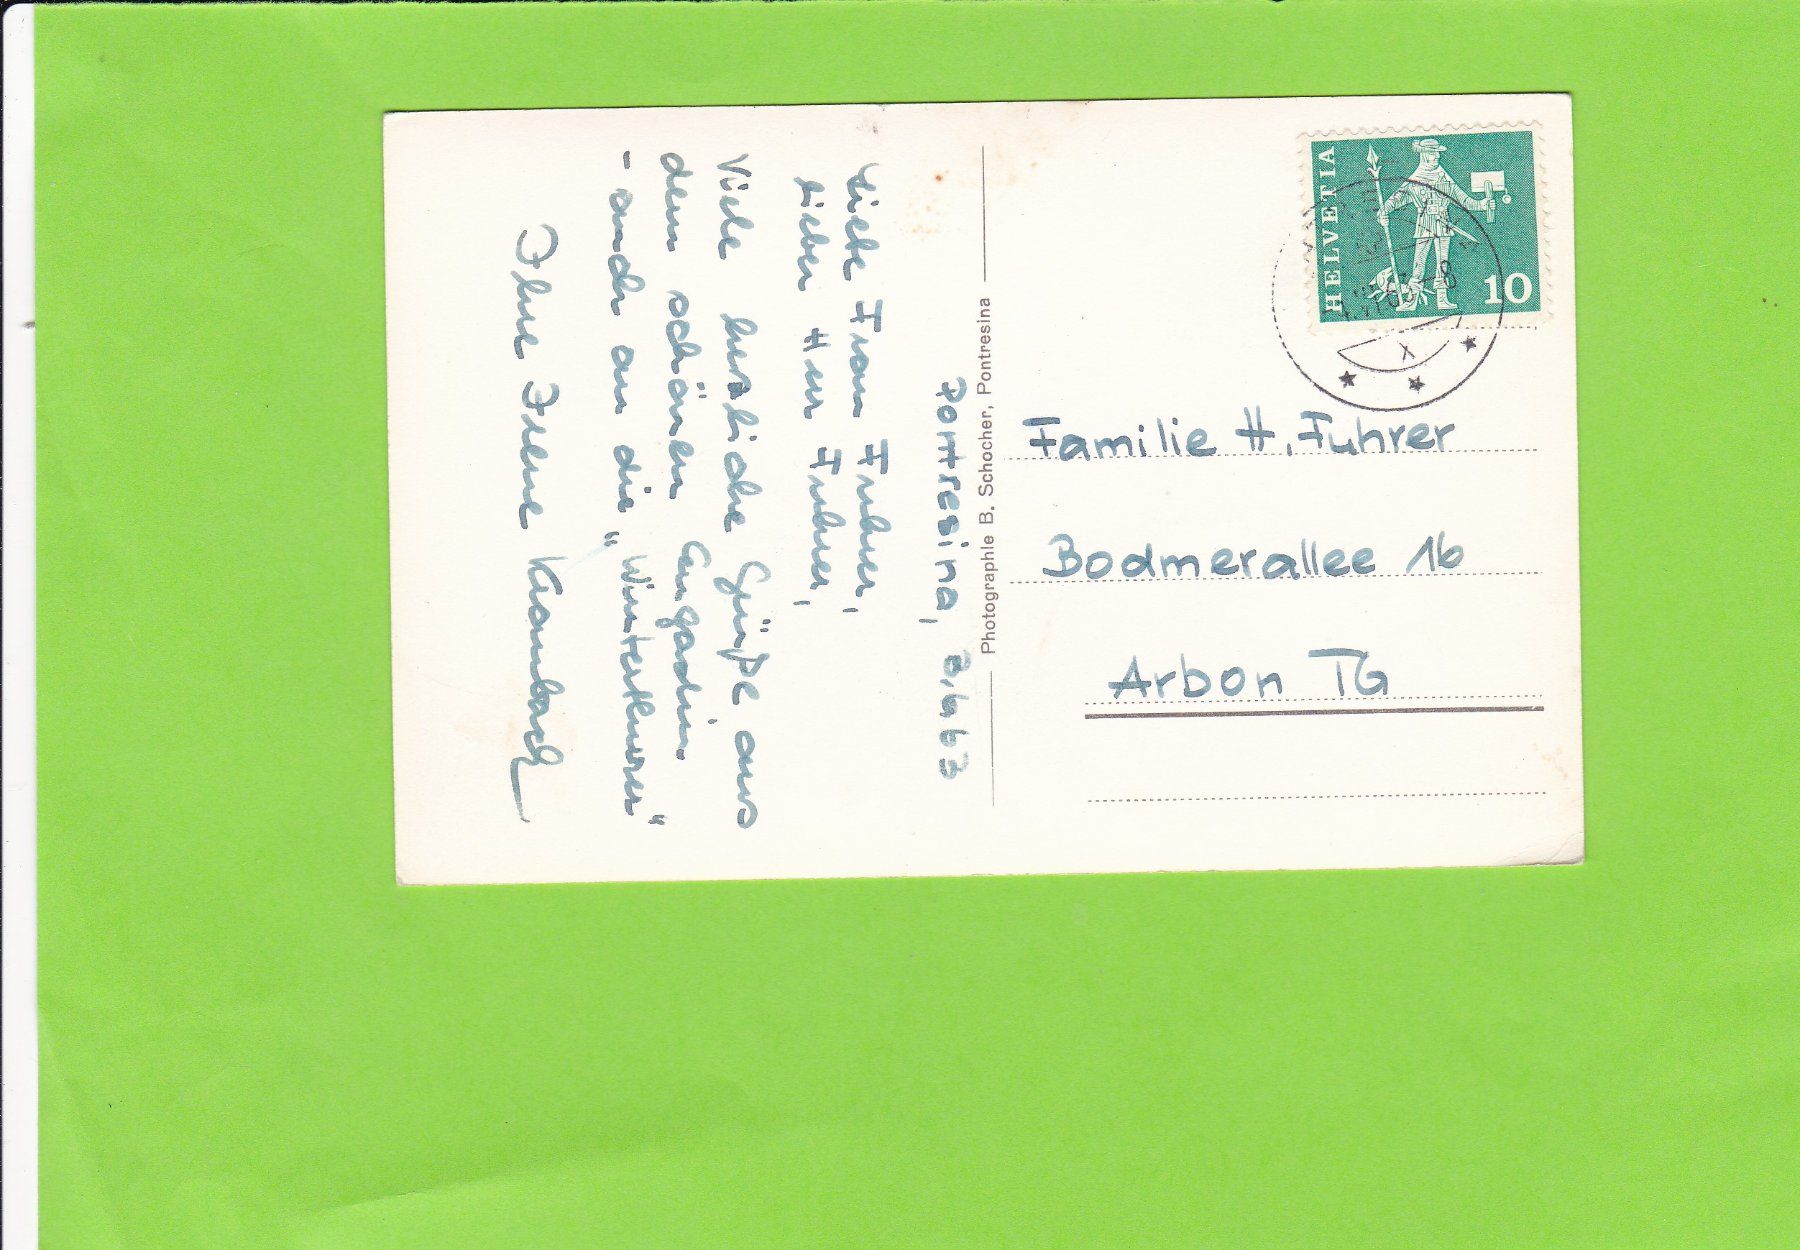 Pontresina,
Liebe Frau Fuhrer,
Lieber Herr Fuhrer,
Viele herzliche Grüße aus
dem schönen Engadin
- auch an die „Winterthurer"
Ihre Irene Krambach
Photographie B. Schocher, Pontresina
HELVETIA
10
Familie H. Fuhrer
Bodmerallee 16
Arbon TG